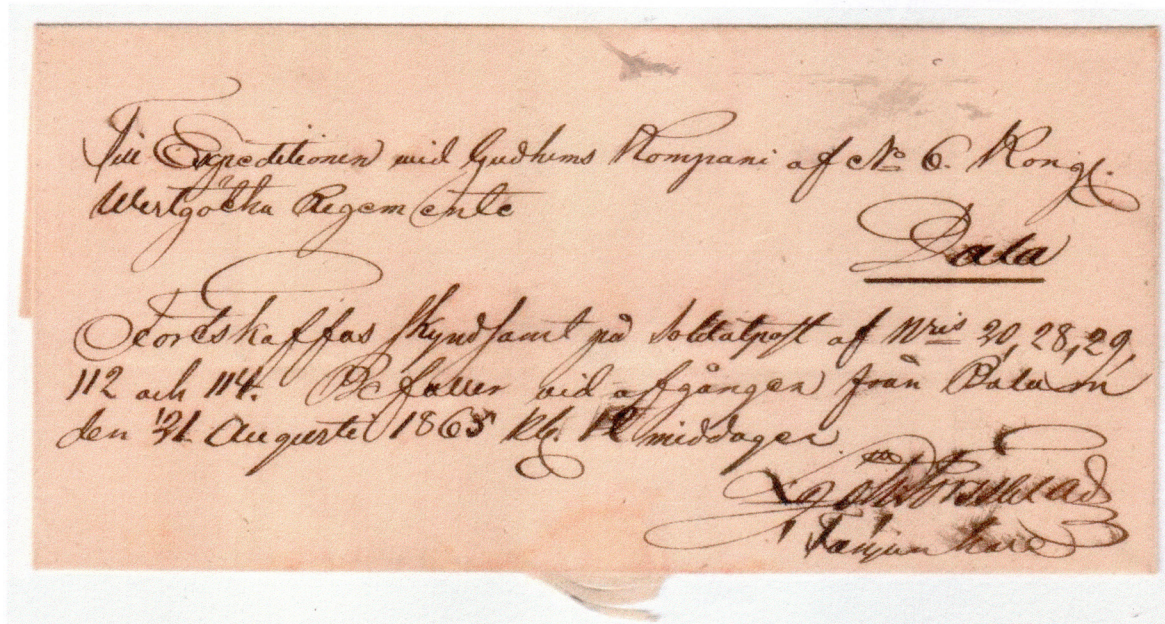 Till Expeditionen vid Gudhems Kompani af No 6. Kongl.
Westgötha Regemente
Dala
Fortskaffas skyndsamt på Soldatpost af Nris 20, 28, 29,
112 och 114. Befaller vid afgången från
den 31 Augusti 1865 Kl. 12 middagen
Fanjunkare